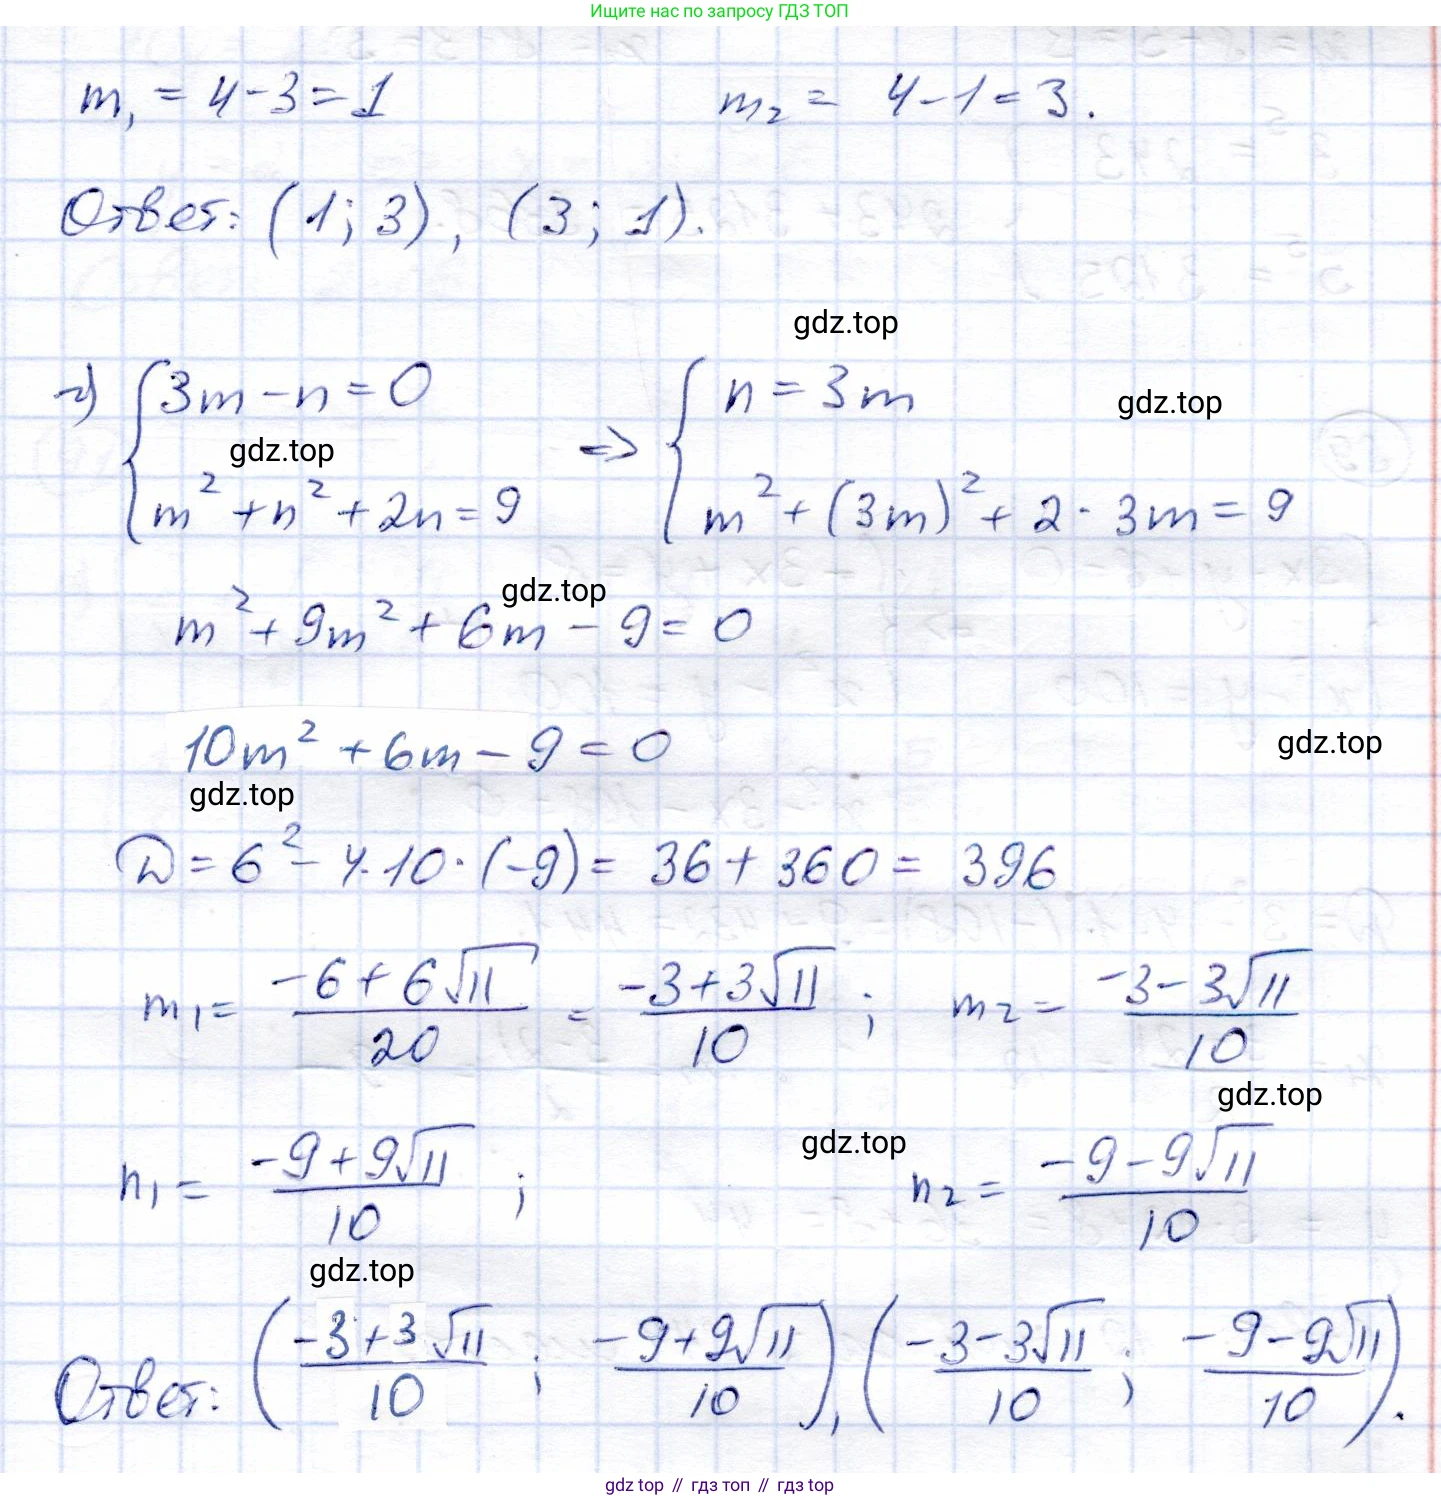 Ищите нас по запросу ГДЗ ТОП
m₁ = 4 - 3 = 1 m₂ = 4 - 1 = 3.
Ответ: (1; 3), (3; 1).
gdz.top
г) { 3m - n = 0 ⇒ { n = 3m
gdz.top gdz.top
m² + n² + 2n = 9 m² + (3m)² + 2 · 3m = 9
gdz.top
m² + 9m² + 6m - 9 = 0
10m² + 6m - 9 = 0
gdz.top
gdz.top
D = 6² - 4 · 10 · (-9) = 36 + 360 = 396
m₁ = (-6 + 6√11)/20 = (-3 + 3√11)/10 ; m₂ = (-3 - 3√11)/10
gdz.top
gdz.top
n₁ = (-9 + 9√11)/10 ; n₂ = (-9 - 9√11)/10
gdz.top
Ответ: ((-3 + 3√11)/10 ; (-9 + 9√11)/10), ((-3 - 3√11)/10 ; (-9 - 9√11)/10).
gdz top // гдз топ // гдз top